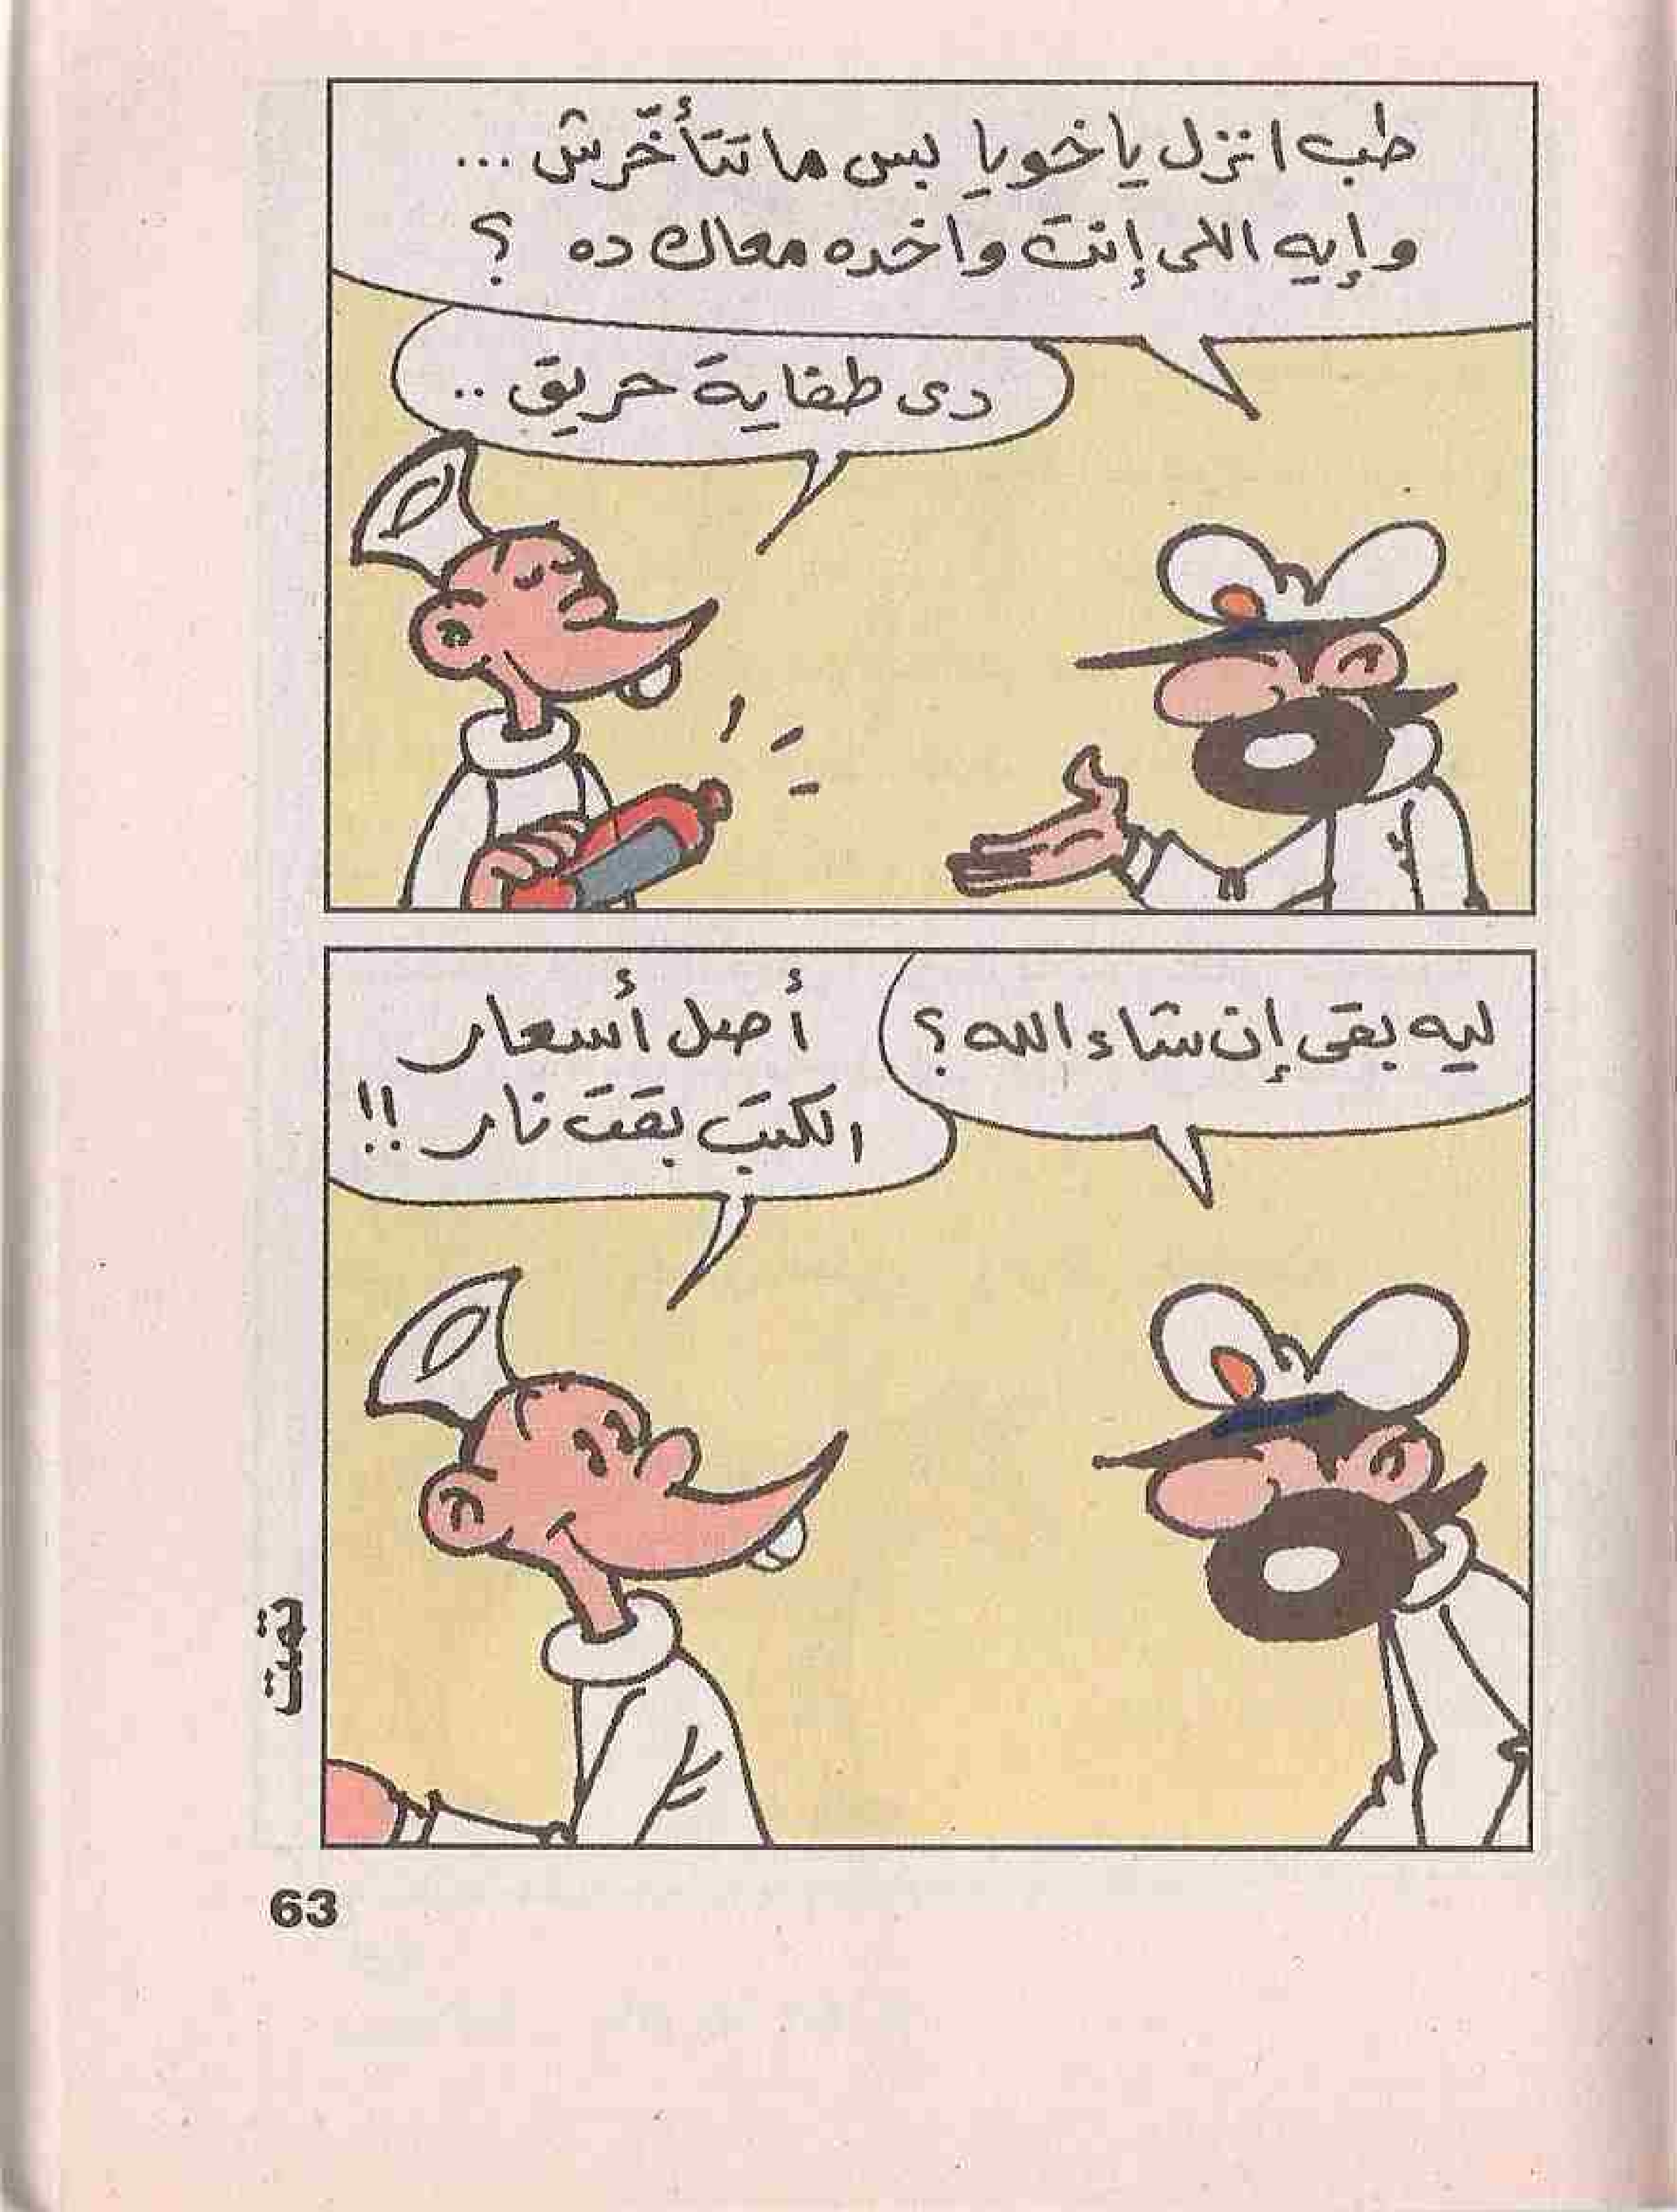 طب انزل ياخويا بس ماتتأخّرش ...
وإيه اللى إنتَ واخده معاك ده ؟
دى طفاية حريق ..
ليه بقى إن شاء الله ؟
أصل أسعار
الكتب بقت نار !!
تمت
63